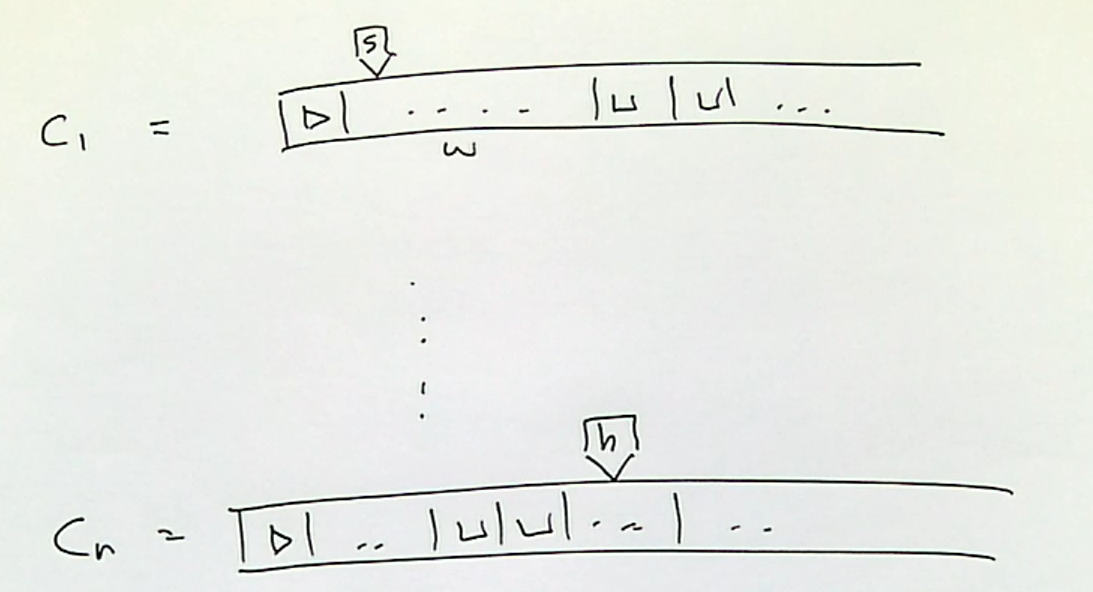 s
C₁ = |▷| .... |⊔|⊔| ...
w
h
Cₙ = |▷| .. |⊔|⊔| ... | ..